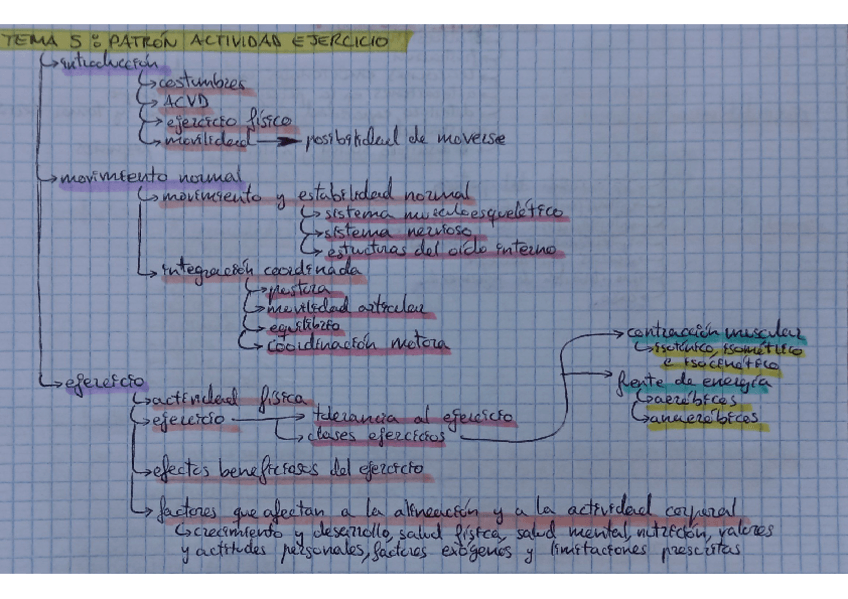 TEMA 5: PATRÓN ACTIVIDAD EJERCICIO
introducción
costumbres
ACVD
ejercicio físico
movilidad → posibilidad de moverse
movimiento normal
movimiento y estabilidad normal
sistema musculoesquelético
sistema nervioso
estucturas del oído interno
integración coordinada
postura
movilidad articular
equilibrio
coordinación motora
contracción muscular
isotónico, isométrico
e isocinético
ejercicio
fuente de energía
actividad física
aeróbicos
ejercicio → tolerancia al ejercicio
anaeróbicos
clases ejercicios
efectos beneficiosos del ejercicio
factores que afectan a la alineación y a la actividad corporal
crecimiento y desarrollo, salud física, salud mental, nutrición, valores
y actitudes personales, factores exógenos y limitaciones prescritas